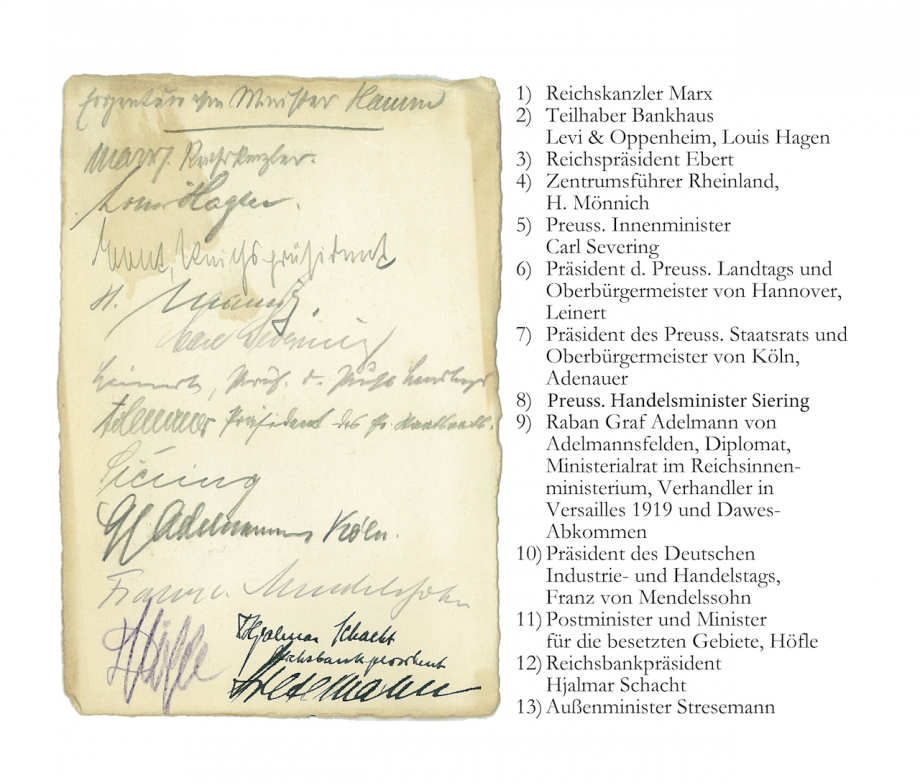 Eigentum von Minister Hamm
Marx, Reichskanzler.
Louis Hagen.
Ebert, Reichspräsident
H.
Carl Severing
Leinert, Präs. d. Landtags
Adenauer Präsident des Pr. Staatsrats.
Siering
Gf Adelmann, Köln.
Franz v. Mendelssohn
Höfle
Hjalmar Schacht
Reichsbankpräsident
Stresemann
1) Reichskanzler Marx
2) Teilhaber Bankhaus
Levi & Oppenheim, Louis Hagen
3) Reichspräsident Ebert
4) Zentrumsführer Rheinland,
H. Mönnich
5) Preuss. Innenminister
Carl Severing
6) Präsident d. Preuss. Landtags und
Oberbürgermeister von Hannover,
Leinert
7) Präsident des Preuss. Staatsrats und
Oberbürgermeister von Köln,
Adenauer
8) Preuss. Handelsminister Siering
9) Raban Graf Adelmann von
Adelmannsfelden, Diplomat,
Ministerialrat im Reichsinnen-
ministerium, Verhandler in
Versailles 1919 und Dawes-
Abkommen
10) Präsident des Deutschen
Industrie- und Handelstags,
Franz von Mendelssohn
11) Postminister und Minister
für die besetzten Gebiete, Höfle
12) Reichsbankpräsident
Hjalmar Schacht
13) Außenminister Stresemann